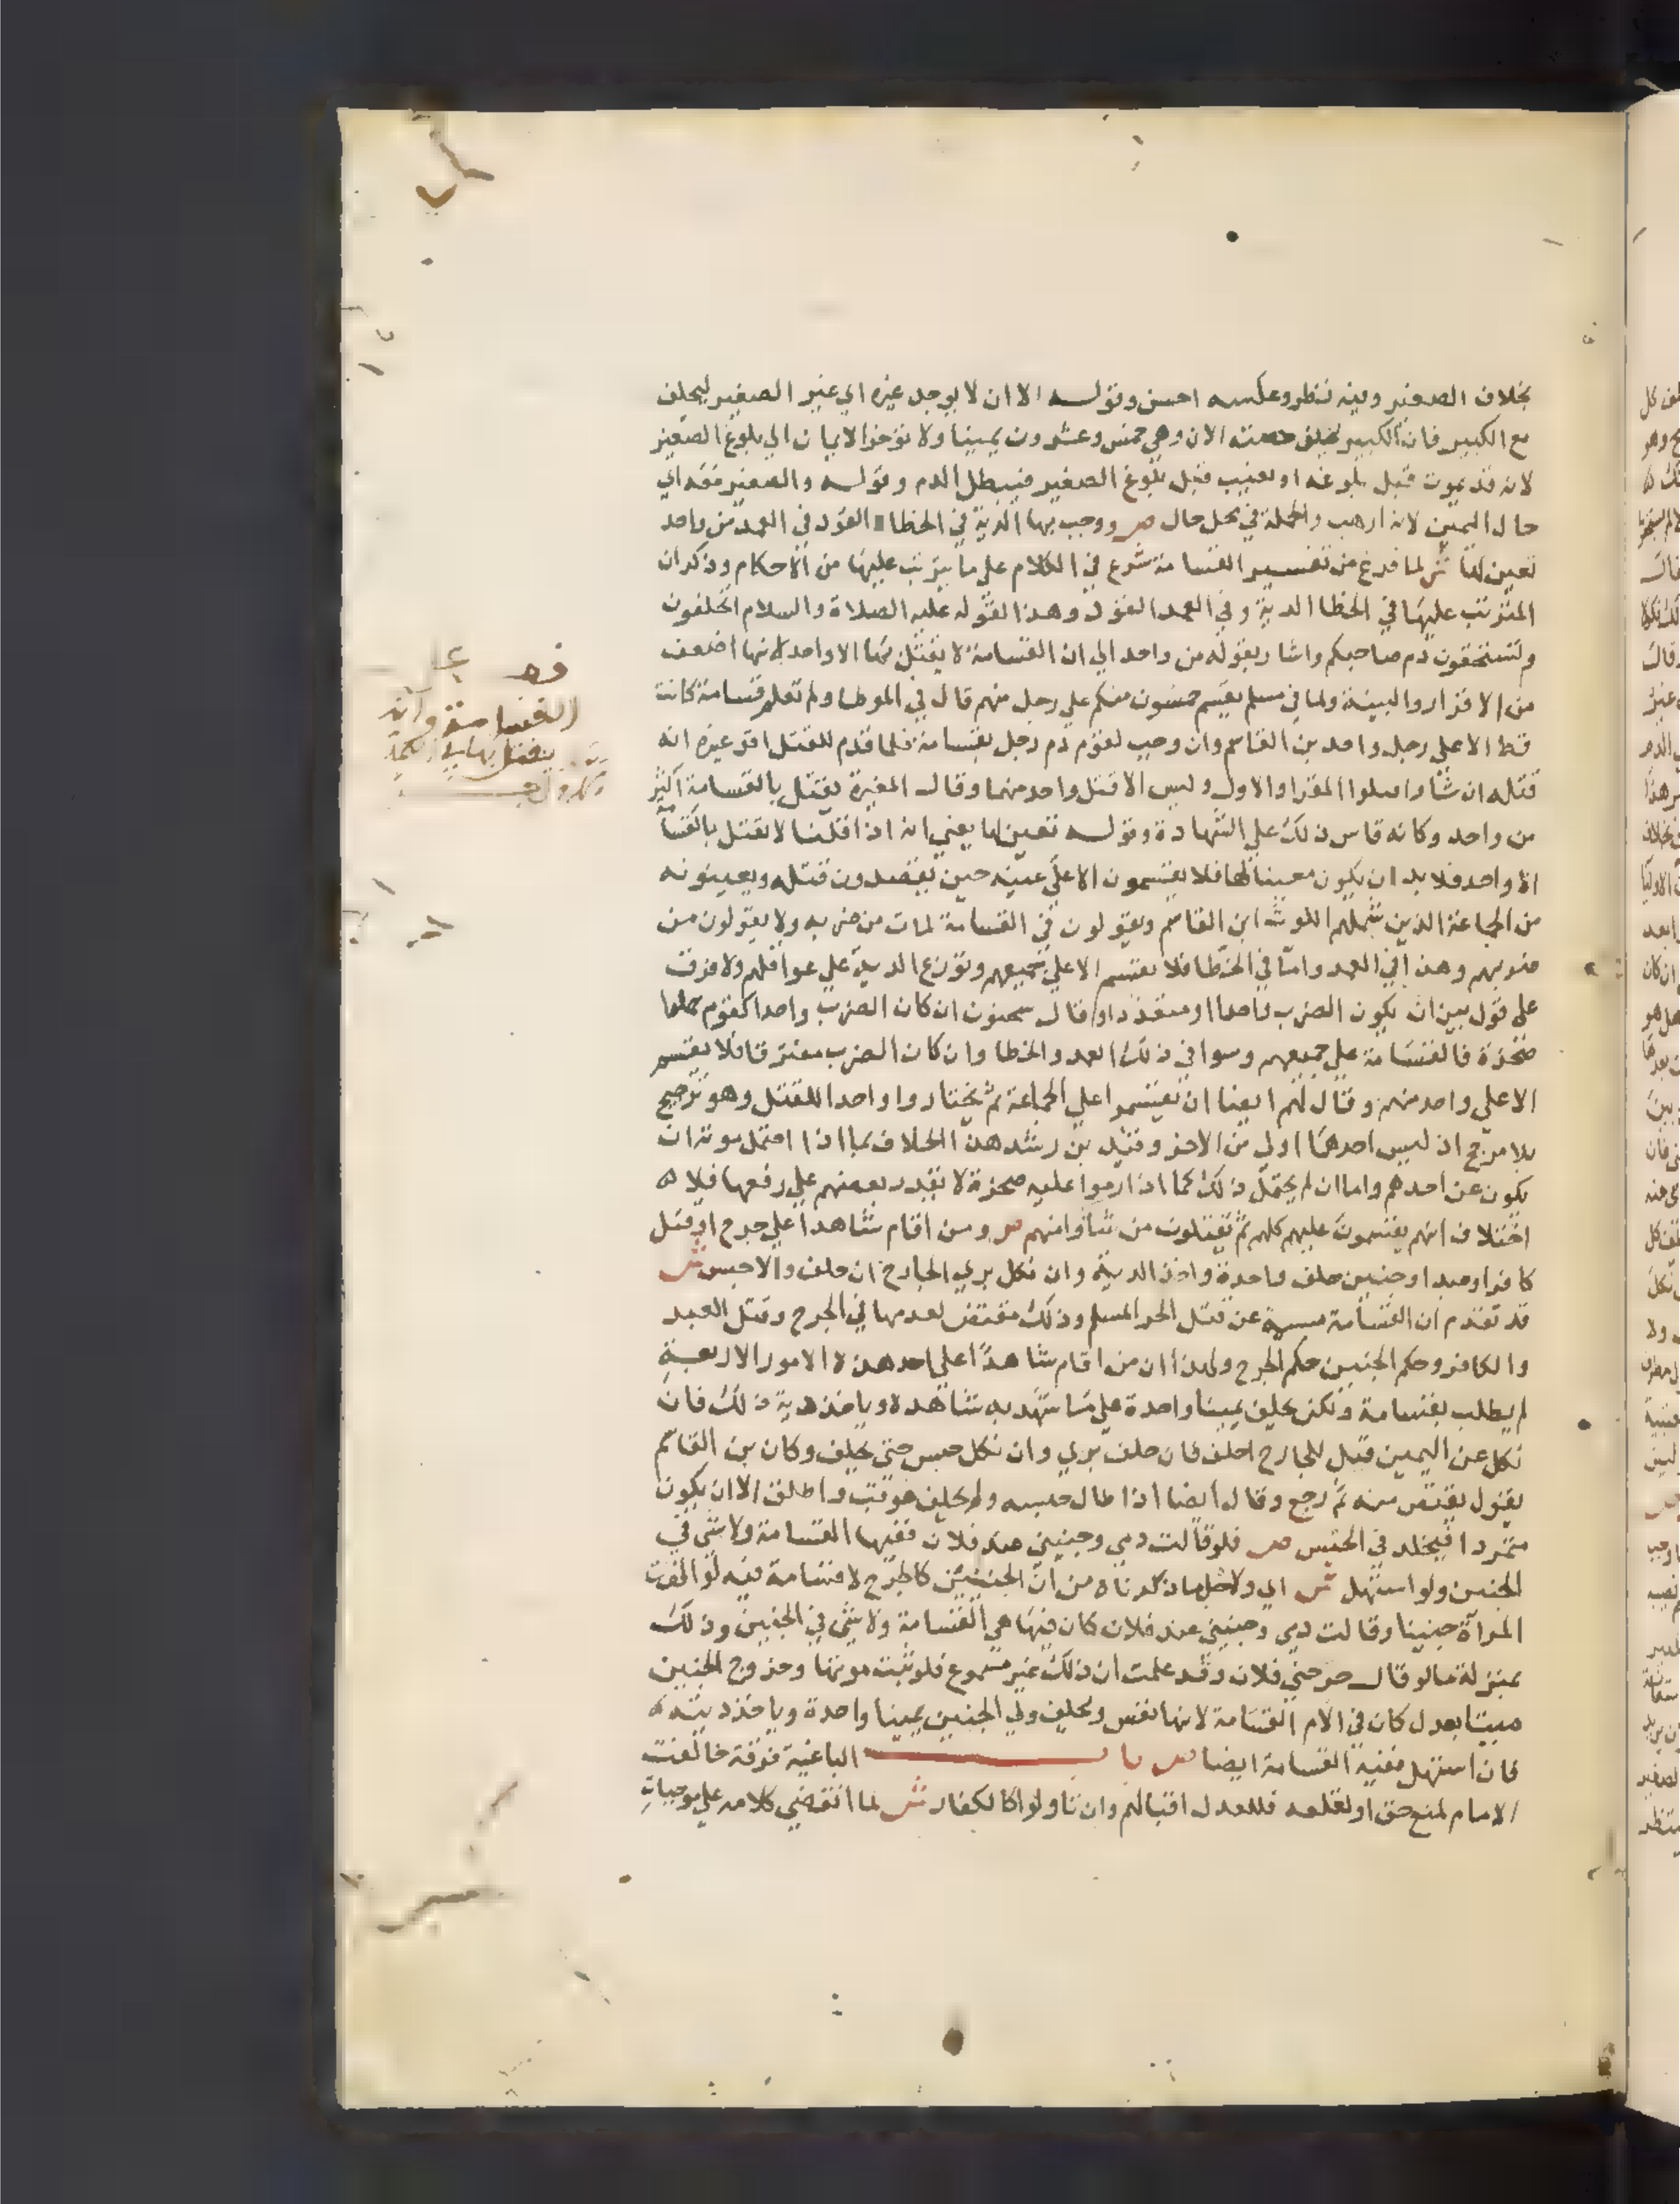 بخلاف الصغير وفيه نظر وعكسه احسن وقوله الا ان لا يوجد غيره اي غير الصغير ليحلف
مع الكبير فان الكبير يحلف حصته الان وهي خمس وعشرون يمينا ولا تؤخر الايمان الي بلوغ الصغير
لانه قد يموت قبل بلوغه او يغيب قبل بلوغ الصغير فيبطل الدم وقوله والصغير معه اي
حال اليمين لانه ارهب والجملة في محل حال ص ووجب بها الدية في الخطا القود في العمد من واحد
تعين لها ش لما فرغ من تفسير القسامة شرع في الكلام علي ما يترتب عليها من الاحكام وذكر ان
المترتب عليها في الخطا الدية وفي العمد القود وهذا لقوله عليه الصلاة والسلام اتحلفون
وتستحقون دم صاحبكم واشار بقوله من واحد الي ان القسامة لا يقتل بها الا واحد لانها اضعف
من الاقرار والبينة ولما في مسلم يقسم خمسون منكم علي رجل منهم قال في الموطا ولم نعلم قسامة كانت
قط الا علي رجل واحد بن القاسم وان وجب لقوم دم رجل بقسامة فلما قدم للقتل اقر غيره انه
قتله ان شاوا قتلوا المقر او الاول وليس الا قتل واحد منهما وقال المغيرة يقتل بالقسامة اكثر
من واحد وكانه قاس ذلك علي الشهادة وقوله تعين لها يعني انه اذا قلنا لا يقتل بالقسامة
الا واحد فلا بد ان يكون معينا لها فلا يقسمون الا علي عينه حين يقصدون قتله ويعينونه
من الجماعة الذين شملهم اللوث ابن القاسم ويقولون في القسامة لمات من ضربه ولا يقولون من
ضربهم وهذا في العمد واما في الخطا فلا يقسم الا علي جميعهم وتوزع الدية علي عواقلهم ولا فرق
علي قول بين ان يكون الضرب واحدا او متعددا وقال سحنون ان كان الضرب واحدا كقوم حملوا
صخرة فالقسامة علي جميعهم وسوا في ذلك العمد والخطا وان كان الضرب مفترقا فلا يقسم
الا علي واحد منهم وقال لهم ايضا ان يقسموا علي الجماعة ثم يختاروا واحدا للقتل وهو ترجيح
بلا مرجح اذ ليس احدهما اولي من الاخر وقيد بن رشد هذا الخلاف بما اذا احتمل موته ان
يكون عن احدهم واما ان لم يحتمل ذلك كما اذا رموا عليه صخرة لا يقدر بعضهم علي رفعها فلا
اختلاف انهم يقسمون عليهم كلهم ثم يقتلون من شاوا منهم ص ومن اقام شاهدا علي جرح او قتل
كافر او عبد او جنين حلف واحدة واخذ الدية وان نكل بري الجارح ان حلف والا حبس ش
قد تقدم ان القسامة مسببة عن قتل الحر المسلم وذلك مقتض لعدمها في الجرح وقتل العبد
والكافر وحكم الجنين حكم الجرح ولهذا ان من اقام شاهدا علي احد هذه الامور الاربعة
لم يطلب بقسامة ولكن يحلف يمينا واحدة علي ما شهد به شاهده وياخذ دية ذلك فان
نكل عن اليمين قيل للجارح احلف فان حلف بري وان نكل حبس حتي يحلف وكان بن القاسم
يقول يقتص منه ثم رجع وقال ايضا اذا طال حبسه ولم يحلف عوقب واطلق الا ان يكون
متمردا فيخلد في الحبس ص فلو قالت دمي وجنيني عند فلان ففيها القسامة ولا شي في
الجنين ولو استهل ش اي ولاجل ما ذكرناه من ان الجنين كالجرح لا قسامة فيه لو القت
المراة جنينا وقالت دمي وجنيني عند فلان كان فيها هي القسامة ولا شي في الجنين وذلك
بمنزلة ما لو قال جرحني فلان وقد علمت ان ذلك غير مسموع فلو ثبت موتها وخروج الجنين
ميتا بعدل كان في الام القسامة لانها نفس ويحلف ولي الجنين يمينا واحدة وياخذ ديته
فان استهل ففيه القسامة ايضا ص باب الباغية فرقة خالفت
الامام لمنع حق او لخلعه فللعدل قتالهم وان تاولوا كالكفار ش لما انقضي كلامه علي موجبات
القسامة وانه
يقتل بها في العمد